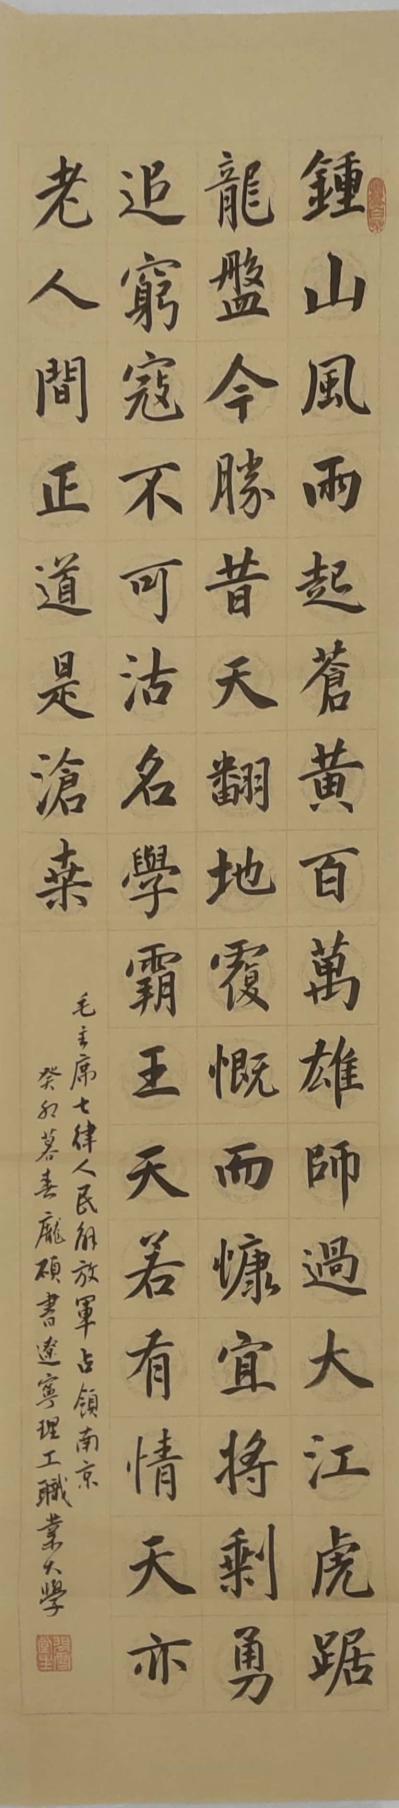 鍾山風雨起蒼黃百萬雄師過大江虎踞
龍盤今勝昔天翻地覆慨而慷宜將剩勇
追窮寇不可沽名學霸王天若有情天亦
老人間正道是滄桒
毛主席七律人民解放軍占領南京
癸卯暮春龐碩書遼寧理工職業大學